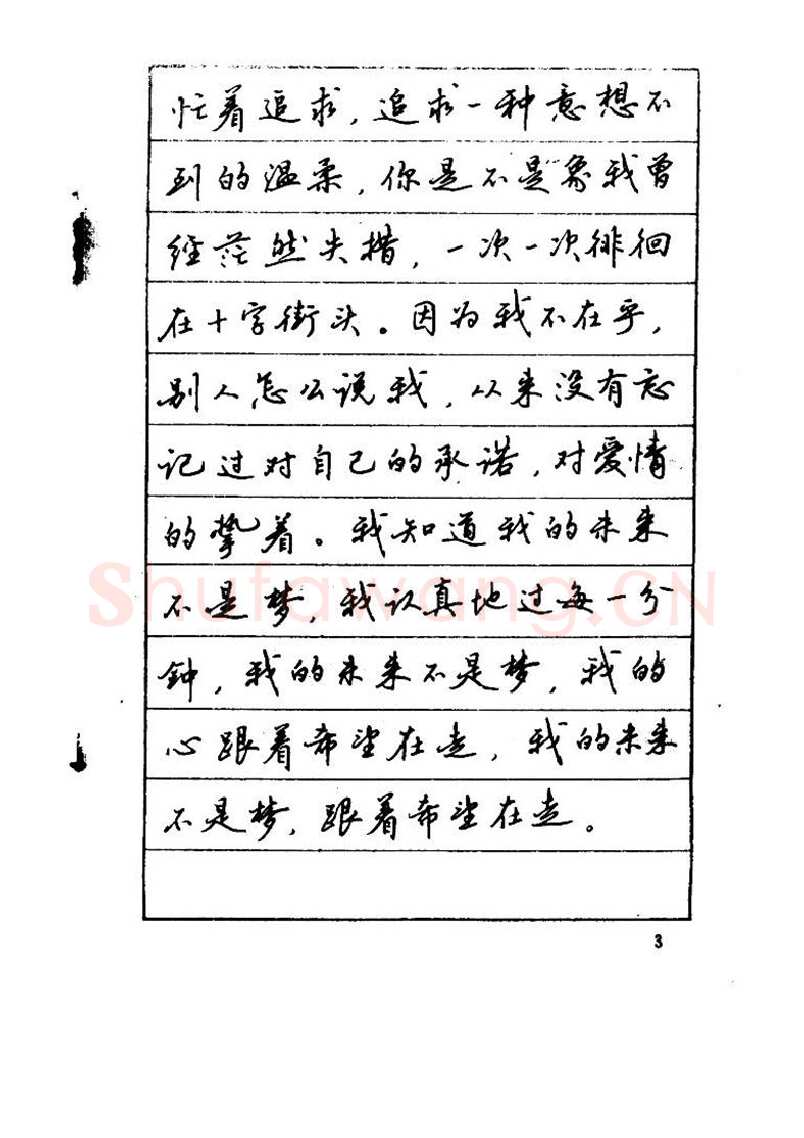 忙着追求，追求一种意想不
到的温柔，你是不是象我曾
经茫然失措，一次一次徘徊
在十字街头。因为我不在乎，
别人怎么说我，从来没有忘
记过对自己的承诺，对爱情
的挚着。我知道我的未来
不是梦，我认真地过每一分
钟，我的未来不是梦，我的
心跟着希望在走，我的未来
不是梦，跟着希望在走。
3
Shufawang.CN